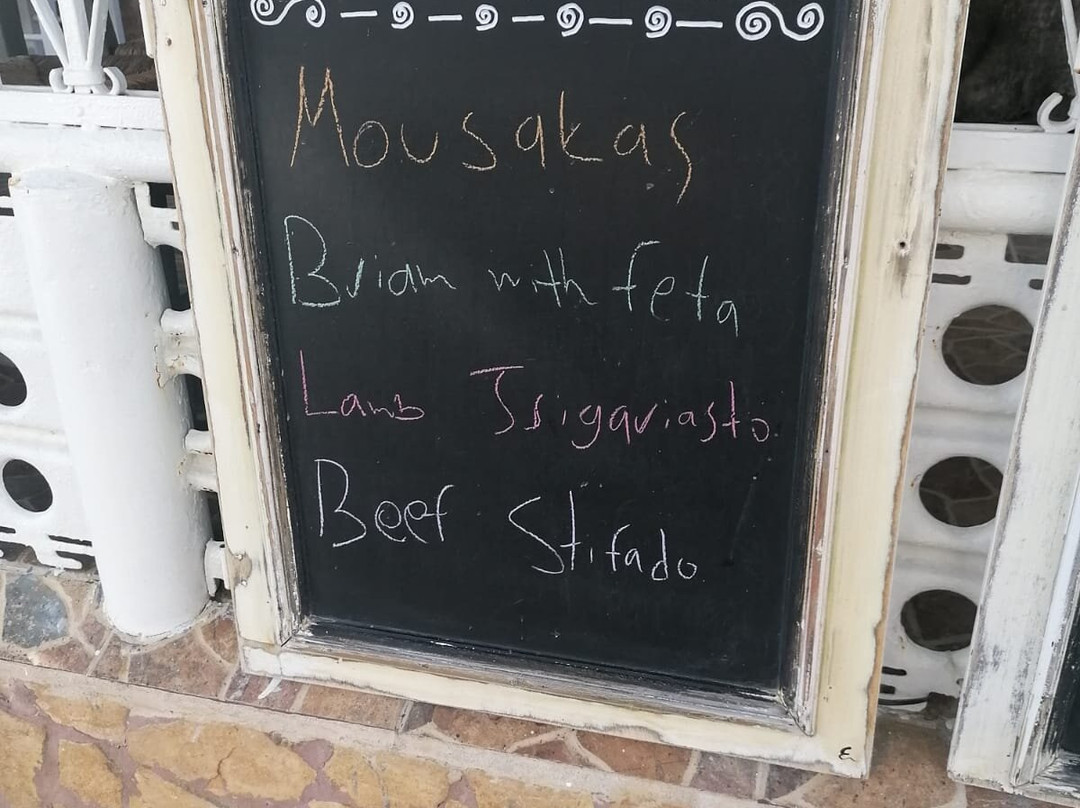 Mousakas
Briam with feta
Lamb Tsigariasto
Beef Stifado
ε